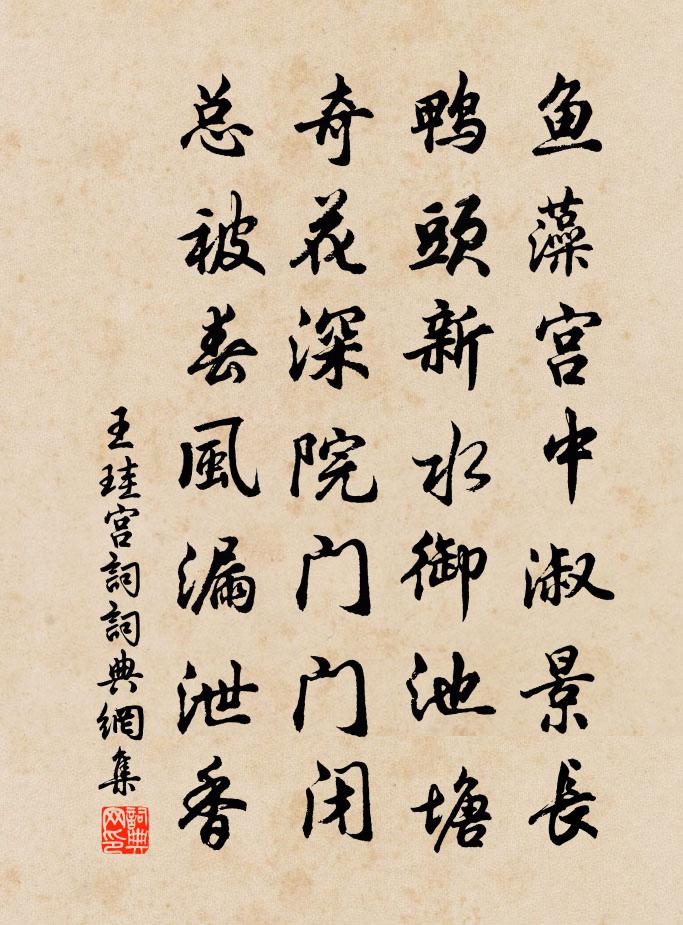 鱼藻宫中淑景長
鸭頭新水御池塘
奇花深院门门闭
总被春風漏泄香
王珪宫詞詞典網集
詞典网印